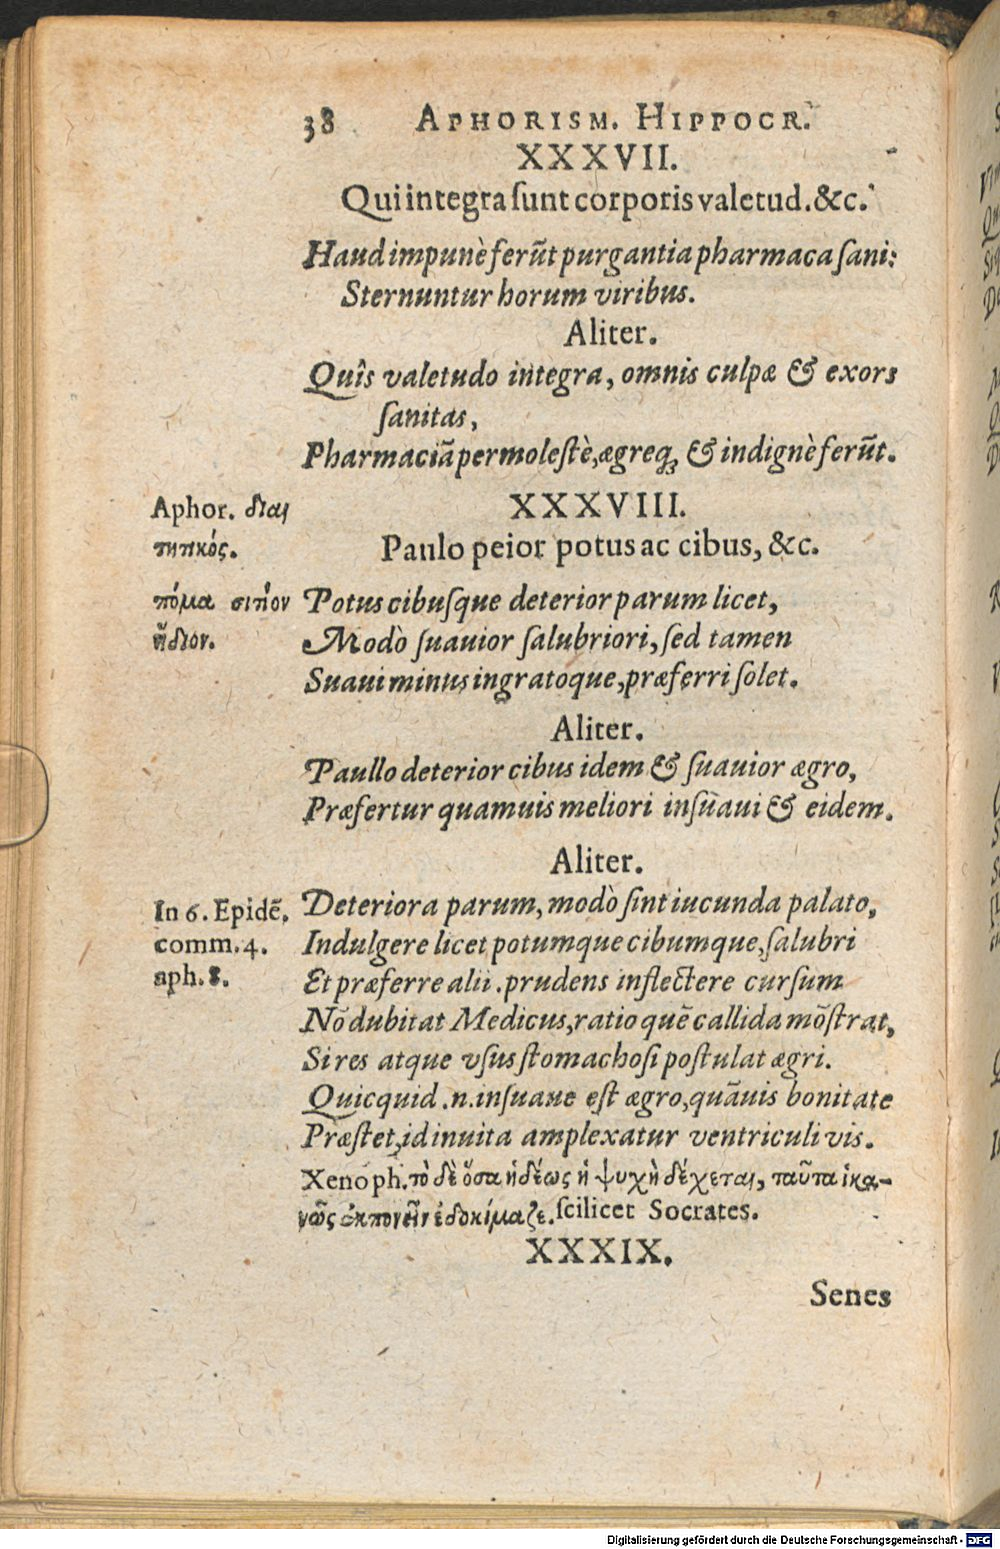 38 APHORISM. HIPPOCR.
XXXVII.
Qui integra ſunt corporis valetud. &c.
Haud impunè ferũt purgantia pharmaca ſani:
Sternuntur horum viribus.
Aliter.
Quîs valetudo integra, omnis culpæ & exors
ſanitas,
Pharmaciã permoleſtè, ægreq; & indignè ferũt.
XXXVIII.
Aphor. διαι
τητικός.
Paulo peior potus ac cibus, &c.
πόμα σιτίον
ἥδιον.
Potus cibuſque deterior parum licet,
Modò ſuauior ſalubriori, ſed tamen
Suaui minus ingratoque, præferri ſolet.
Aliter.
Paullo deterior cibus idem & ſuauior ægro,
Præfertur quamuis meliori inſuaui & eidem.
Aliter.
In 6. Epidẽ.
comm. 4.
aph. 8.
Deteriora parum, modò ſint iucunda palato,
Indulgere licet potumque cibumque, ſalubri
Et præferre alii. prudens inflectere curſum
Nõ dubitat Medicus, ratio quẽ callida mõſtrat,
Si res atque vſus ſtomachoſi poſtulat ægri.
Quicquid .n. inſuaue eſt ægro, quãuis bonitate
Præſtet, id inuita amplexatur ventriculi vis.
Xenoph. τὸ δὲ ὅσα ἡδέως ἡ ψυχὴ δέχεται, ταῦτα ἱκα-
νῶς ἐκπονεῖν ἐδοκίμαζε. ſcilicet Socrates.
XXXIX.
Senes
Digitalisierung gefördert durch die Deutsche Forschungsgemeinschaft - DFG